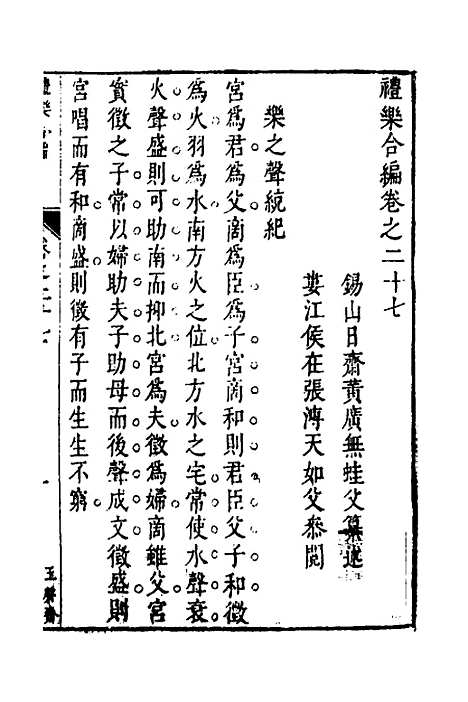 禮樂合編卷之二十七
錫山日齋黃廣無蛙父纂述
婁江侯在張溥天如父參閱
樂之聲統紀
宮爲君爲父商爲臣爲子宮商和則君臣父子和徵
爲火羽爲水南方火之位北方水之宅常使水聲衰
火聲盛則可助南而抑北宮爲夫徵爲婦商雖父宮
實徵之子常以婦助夫子助母而後聲成文徵盛則
宮唱而有和商盛則徵有子而生生不窮
禮樂合編
卷之二十七
一
玉磬齋